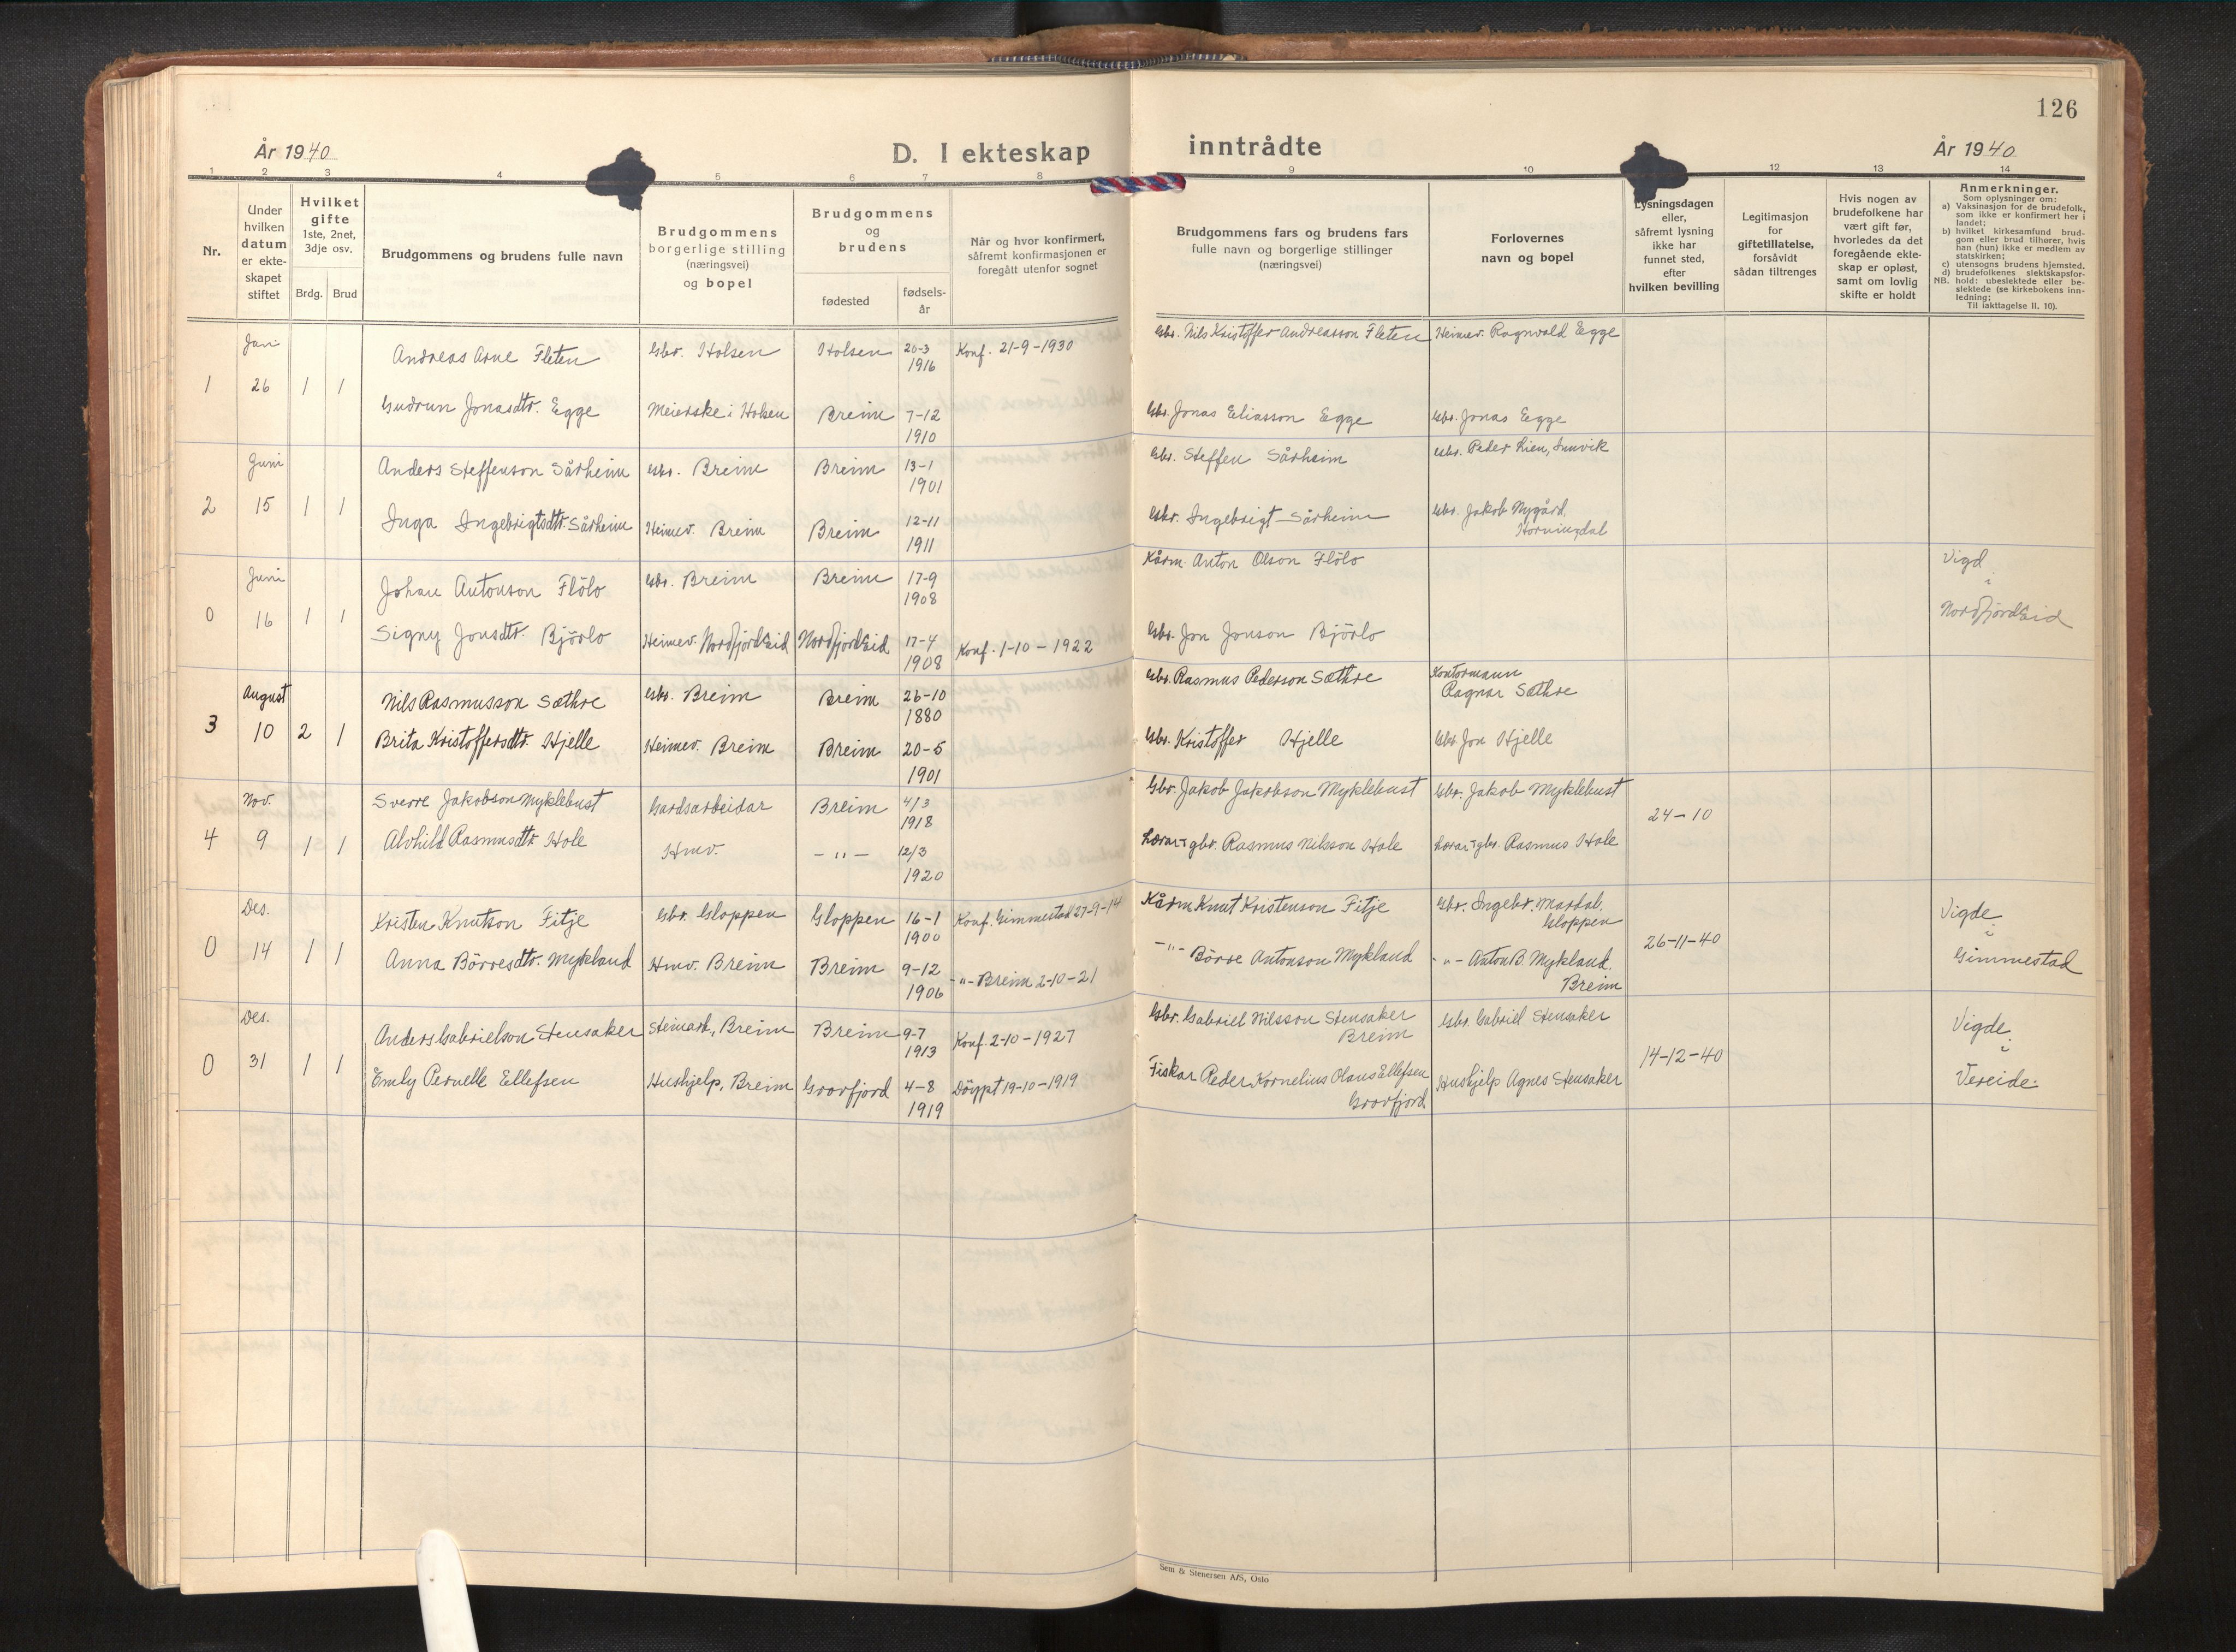 126
År 1940
D. I ekteskap inntrådte
År 1940
1 2 3 4 5 6 7 8 9 10 12 13 14
Nr.
Under
hvilken
datum
er ekte-
skapet
stiftet
Hvilket
gifte
1ste, 2net,
3dje osv.
Brdg. Brud
Brudgommens og brudens fulle navn
Brudgommens
borgerlige stilling
(næringsvei)
og bopel
Brudgommens
og
brudens
fødested
fødsels-
år
Når og hvor konfirmert,
såfremt konfirmasjonen er
foregått utenfor sognet
Brudgommens fars og brudens fars
fulle navn og borgerlige stillinger
(næringsvei)
Forlovernes
navn og bopel
Lysningsdagen
eller,
såfremt lysning
ikke har
funnet sted,
efter
hvilken bevilling
Legitimasjon
for
giftetillatelse,
forsåvidt
sådan tiltrenges
Hvis nogen av
brudefolkene har
vært gift før,
hvorledes da det
foregående ekte-
skap er opløst,
samt om lovlig
skifte er holdt
Anmerkninger.
Som oplysninger om:
a) Vaksinasjon for de brudefolk,
som ikke er konfirmert her i
landet;
b) hvilket kirkesamfund brud-
gom eller brud tilhører, hvis
han (hun) ikke er medlem av
statskirken;
c) utensogns brudens hjemsted.
d) brudefolkenes slektskapsfor-
NB. hold: ubeslektede eller be-
slektede (se kirkebokens inn-
ledning;
Til iakttagelse II. 10).
Jan.
1 26 1 1
Andreas Arne Fleten Gbr. Holsen Holsen 20-3 1916 Konf. 21-9-1930 Gbr. Nils Kristoffer Andreasson Fleten Heimev. Ragnvald Egge
Gudrun Jonasdtr. Egge Meierske i Holsen Breim 7-12 1910 Gbr. Jonas Eliasson Egge Gbr. Jonas Egge
Juni
2 15 1 1
Anders Steffenson Sårheim Gbr. Breim Breim 13-1 1901 Gbr. Steffen Sårheim Gbr. Peder Lien, Innvik
Inga Ingebrigtsdtr. Sårheim Heimev. Breim Breim 12-11 1911 Gbr. Ingebrigt Sårheim Gbr. Jakob Nygård, Hornindal
Juni
0 16 1 1
Johan Antonson Flölo Gbr. Breim Breim 17-9 1908 Kårm. Anton Olson Flölo Vigd i Nordfjordeid
Signy Jonsdtr. Bjørlo Heimev. Nordfjordeid Nordfjordeid 17-4 1908 Konf. 1-10-1922 Gbr. Jon Jonson Bjørlo
August
3 10 2 1
Nils Rasmusson Sæthre Gbr. Breim Breim 26-10 1880 Gbr. Rasmus Pederson Sæthre Kontormann Ragnar Sæthre
Brita Kristoffersdtr. Hjelle Heimev. Breim Breim 20-5 1901 Gbr. Kristoffer Hjelle Gbr. Jon Hjelle
Nov.
4 9 1 1
Sverre Jakobson Myklebust Gardsarbeidar Breim 4/3 1918 Gbr. Jakob Jakobson Myklebust Gbr. Jakob Myklebust 24-10
Alvhild Rasmusdtr. Hole Hmv. -"- 12/3 1920 Lærar gbr. Rasmus Nilsson Hole Lærar gbr. Rasmus Hole
Des.
0 14 1 1
Kristen Knutson Fitje Gbr. Gloppen Gloppen 16-1 1900 Konf. Gimmestad 27-9-14 Kårm. Knut Kristenson Fitje Gbr. Ingebr. Mardal, Gloppen 26-11-40 Vigde i Gimmestad
Anna Börresdtr. Mykland Hmv. Breim Breim 9-12 1906 -"- Breim 2-10-21 -"- Börre Antonson Mykland -"- Anton B. Mykland, Breim
Des.
0 31 1 1
Anders Gabrielson Stensaker Steinarb., Breim Breim 9-7 1913 Konf. 2-10-1927 Gbr. Gabriel Nilsson Stensaker Breim Gbr. Gabriel Stensaker 14-12-40 Vigde i Vereide.
Emly Pernelle Ellefsen Hushjelp, Breim Grovfjord 4-8 1919 Döypt 19-10-1919 Fiskar Peder Kornelius Olaus Ellefsen Grovfjord Hushjelp Agnes Stensaker
Sem & Stenersen A/S, Oslo